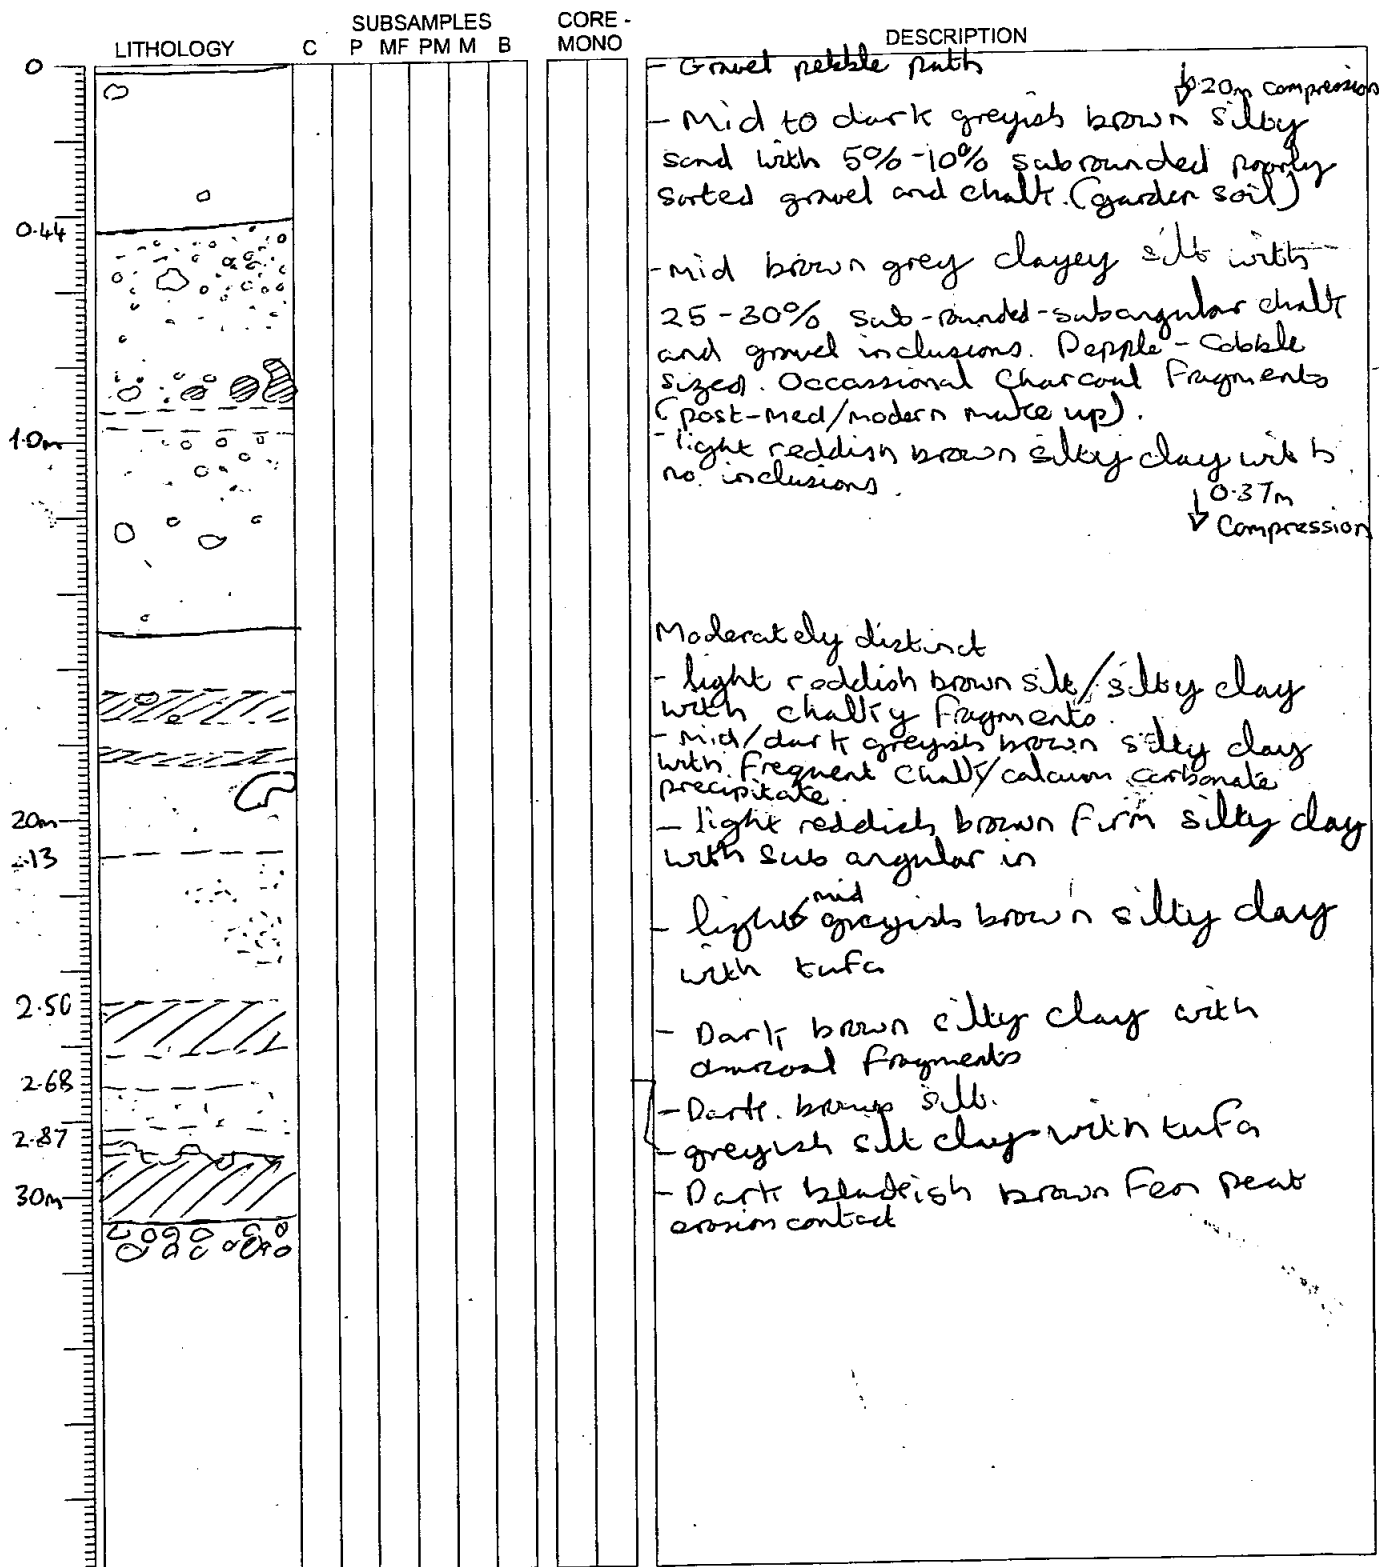 SUBSAMPLES
CORE -
LITHOLOGY C P MF PM M B MONO DESCRIPTION
0
- Gravel pebble path
0.20m compression
- Mid to dark greyish brown silty
sand with 5%-10% subrounded poorly
sorted gravel and chalk. (garden soil)
0.44
- Mid brown grey clayey silt with
25-30% sub-rounded-subangular chalk
and gravel inclusions. Pepple-Cobble
sized. Occassional Charcoal Fragments
(post-med/modern make up).
1.0m
- light reddish brown silty clay with
no inclusions.
0.37m
Compression
Moderately distinct
- light reddish brown silt/silty clay
with chalky fragments.
- Mid/dark greyish brown silty clay
with frequent chalk/calcium carbonate
precipitate.
20m
- light reddish brown firm silty clay
2.13
with sub angular in
mid
- light/ greyish brown silty clay
with tufa
2.50
- Dark brown silty clay with
charcoal fragments
2.68
- Dark brown silt.
2.87
- greyish silt clay with tufa
30m
- Dark blackish brown Fen peat
erosion contact